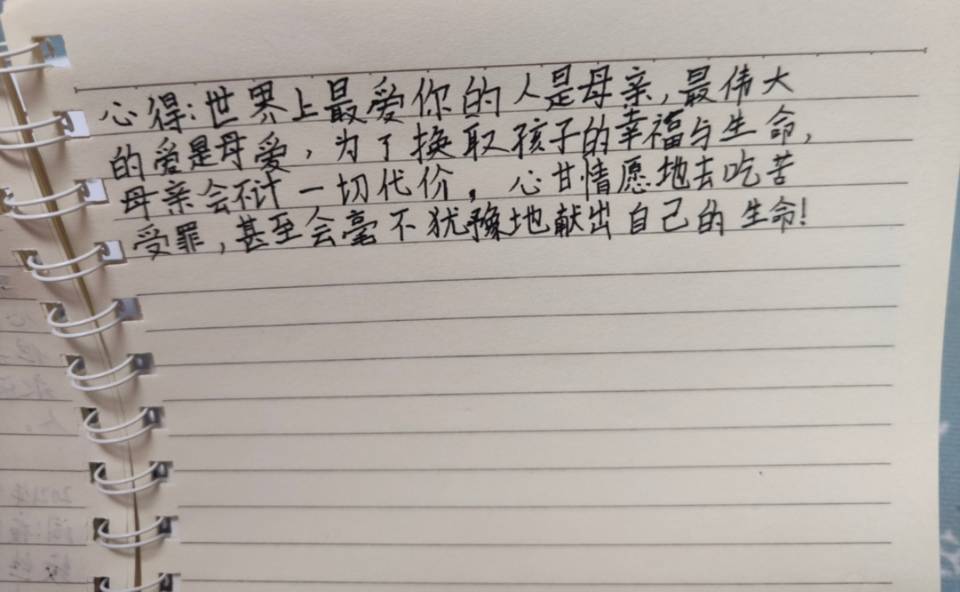 心得:世界上最爱你的人是母亲,最伟大
的爱是母爱,为了换取孩子的幸福与生命,
母亲会不计一切代价,心甘情愿地去吃苦
受罪,甚至会毫不犹豫地献出自己的生命!